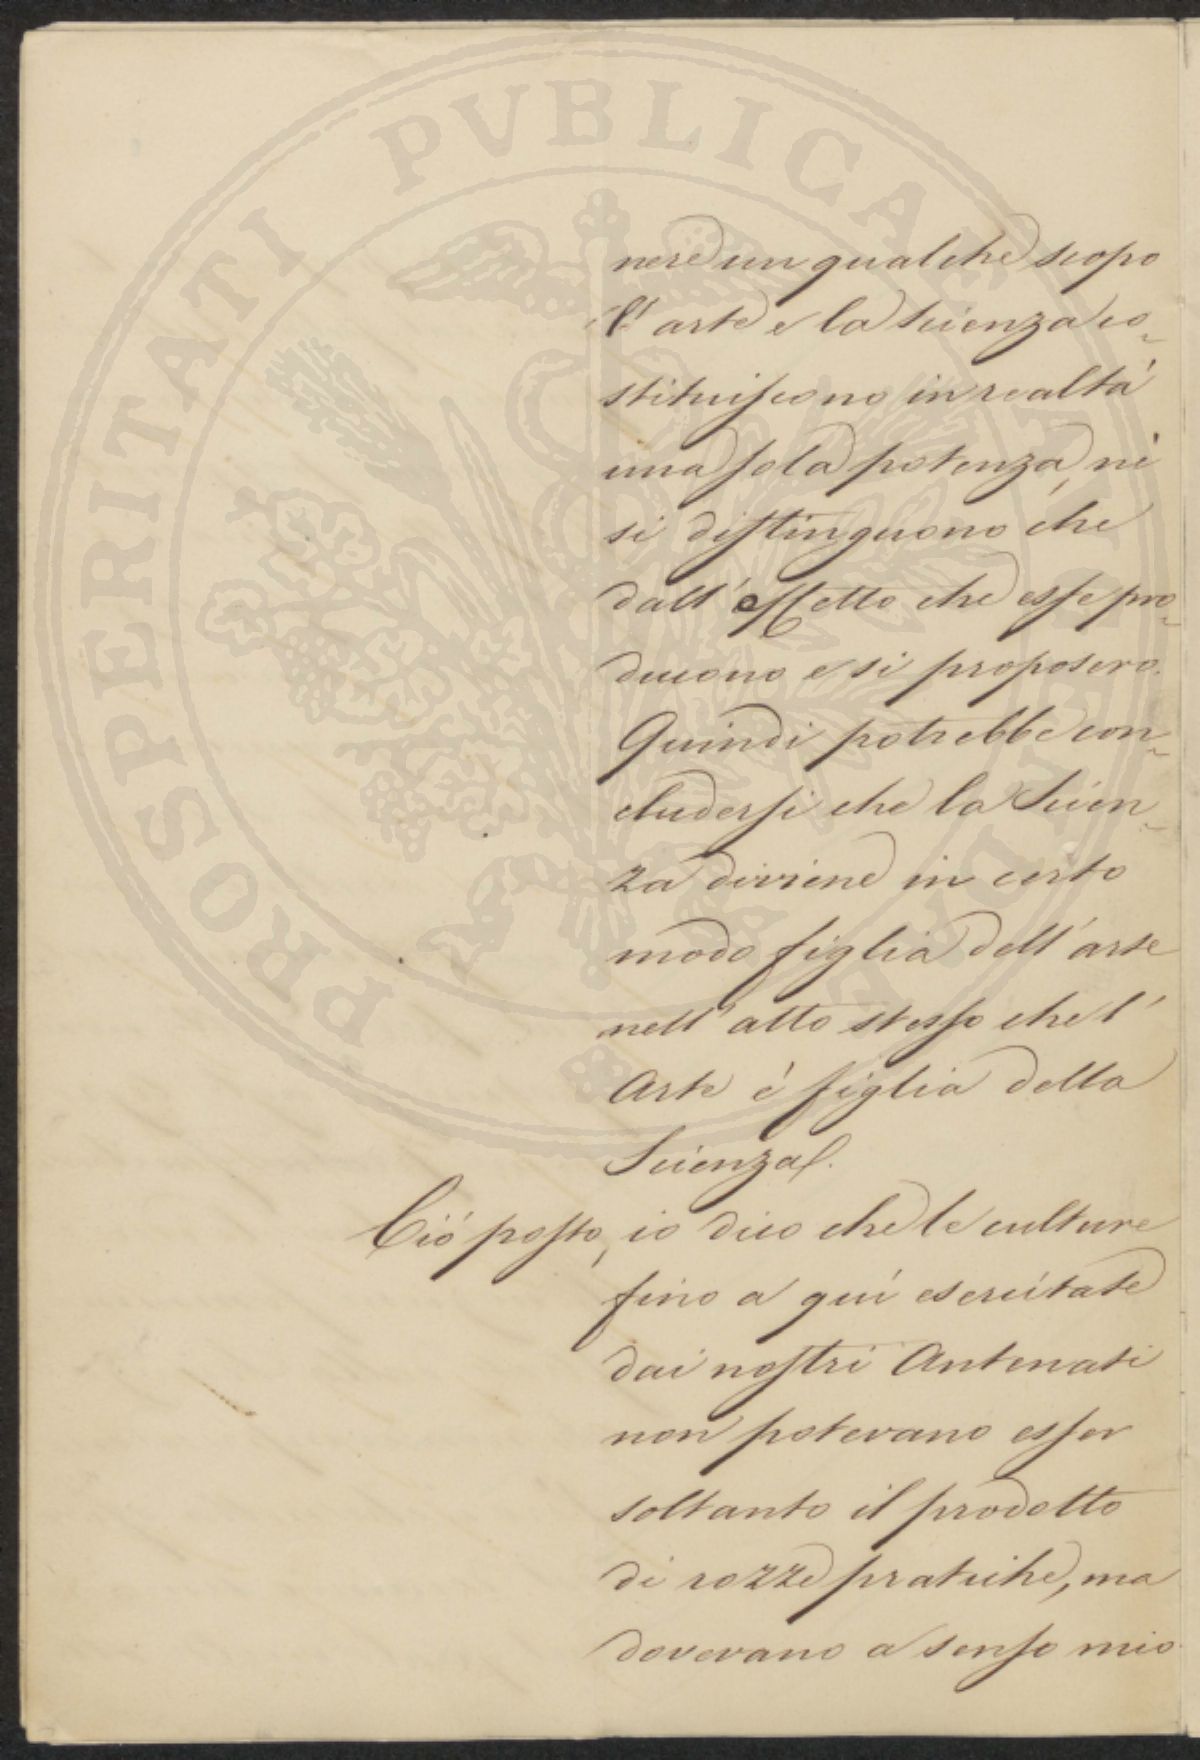 PROSPERITATI PVBLICAE AVGENDAE
nere un qualche scopo
l'arte e la scienza co-
stituiscono in realtà
una sola potenza, nè
si distinguono che
dall'effetto che esse pro-
ducono e si proposero.
Quindi potrebbe con-
cludersi che la Scien-
za diviene in certo
modo figlia dell'arte
nell'atto stesso che l'
Arte è figlia della
Scienza.
Ciò posto, io dico che le culture
fino a quì esercitate
dai nostri Antenati
non potevano esser
soltanto il prodotto
di rozze pratiche, ma
dovevano a senso mio